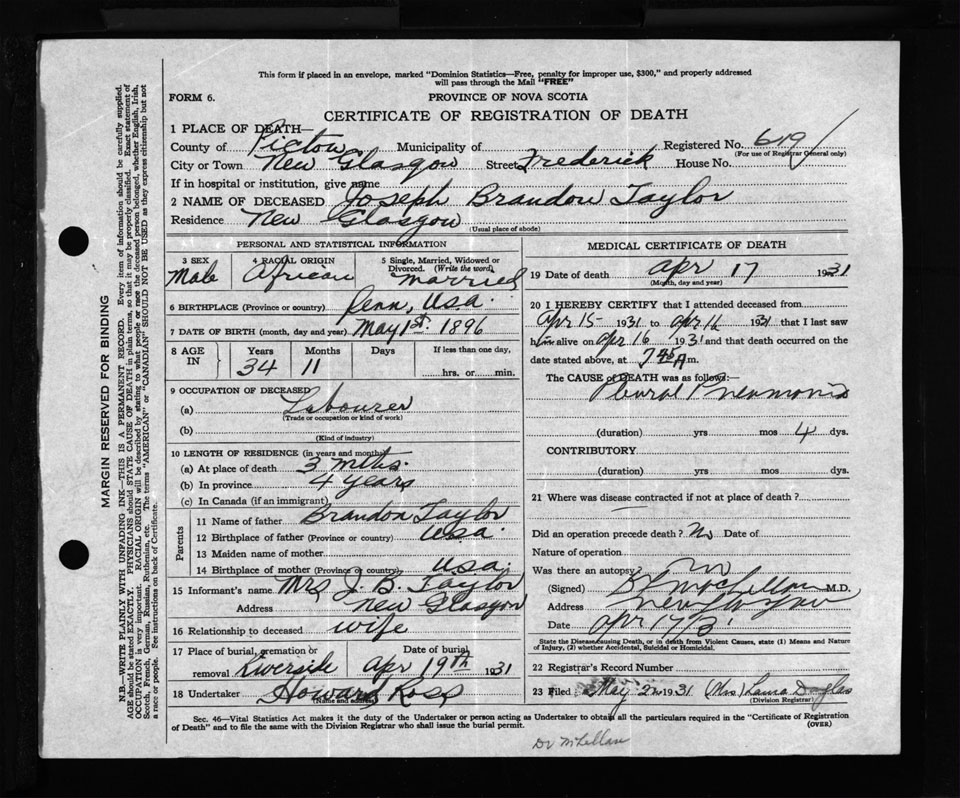 This form if placed in an envelope, marked "Dominion Statistics—Free, penalty for improper use, $300," and properly addressed
will pass through the Mail "FREE"
FORM 6.
PROVINCE OF NOVA SCOTIA
CERTIFICATE OF REGISTRATION OF DEATH
1 PLACE OF DEATH—
County of Pictou Municipality of Registered No. 619
(For use of Registrar General only)
City or Town New Glasgow Street Frederick House No.
If in hospital or institution, give name
2 NAME OF DECEASED Joseph Brandon Taylor
Residence New Glasgow
(Usual place of abode)
PERSONAL AND STATISTICAL INFORMATION
3 SEX 4 RACIAL ORIGIN 5 Single, Married, Widowed or
Divorced. (Write the word)
Male African Married
6 BIRTHPLACE (Province or country) Penn, U.S.a.
7 DATE OF BIRTH (month, day and year) May 1st. 1896
8 AGE IN Years Months Days If less than one day,
34 11 hrs. or min.
9 OCCUPATION OF DECEASED
(a) Labourer
(Trade or occupation or kind of work)
(b)
(Kind of industry)
10 LENGTH OF RESIDENCE (in years and months)
(a) At place of death 3 mths.
(b) In province 4 years
(c) In Canada (if an immigrant)
Parents
11 Name of father Brandon Taylor
12 Birthplace of father (Province or country) U.S.a.
13 Maiden name of mother
14 Birthplace of mother (Province or country) U.S.a.
15 Informant's name Mrs J. B. Taylor
Address New Glasgow
16 Relationship to deceased wife
17 Place of burial, cremation or Date of burial
removal Riverside Apr 19th 1931
18 Undertaker Howard Ross
(Name and address)
MEDICAL CERTIFICATE OF DEATH
19 Date of death Apr 17 1931
(Month, day and year)
20 I HEREBY CERTIFY that I attended deceased from
Apr 15 1931 to Apr 16 1931 that I last saw
him alive on Apr 16 1931 and that death occurred on the
date stated above, at 7 45 A m.
The CAUSE of DEATH was as follows:—
Plural Pneumonia
(duration) yrs mos 4 dys.
CONTRIBUTORY
(duration) yrs mos dys.
21 Where was disease contracted if not at place of death?
Did an operation precede death? No Date of
Nature of operation
Was there an autopsy? no
(Signed) McLellan M.D.
Address New Glasgow
Date Apr 17/31
State the Disease causing Death, or in death from Violent Causes, state (1) Means and Nature
of Injury, (2) whether Accidental, Suicidal or Homicidal.
22 Registrar's Record Number
23 Filed May 2nd 1931 (Mrs) Laura Douglas
(Division Registrar)
Sec. 46—Vital Statistics Act makes it the duty of the Undertaker or person acting as Undertaker to obtain all the particulars required in the "Certificate of Registration
of Death" and to file the same with the Division Registrar who shall issue the burial permit. (OVER)
Dr McLellan
MARGIN RESERVED FOR BINDING
N.B.—WRITE PLAINLY WITH UNFADING INK—THIS IS A PERMANENT RECORD. Every item of information should be carefully supplied.
AGE should be stated EXACTLY. PHYSICIANS should STATE CAUSE OF DEATH in plain terms, so that it may be properly classified. Exact statement of
OCCUPATION is very important. RACIAL ORIGIN will be described by stating to what people or race the deceased person belonged, whether English, Irish,
Scotch, French, German, Russian, Ruthenian, etc. The terms "AMERICAN" or "CANADIAN" SHOULD NOT BE USED as they express citizenship but not
a race or people. See instructions on back of Certificate.